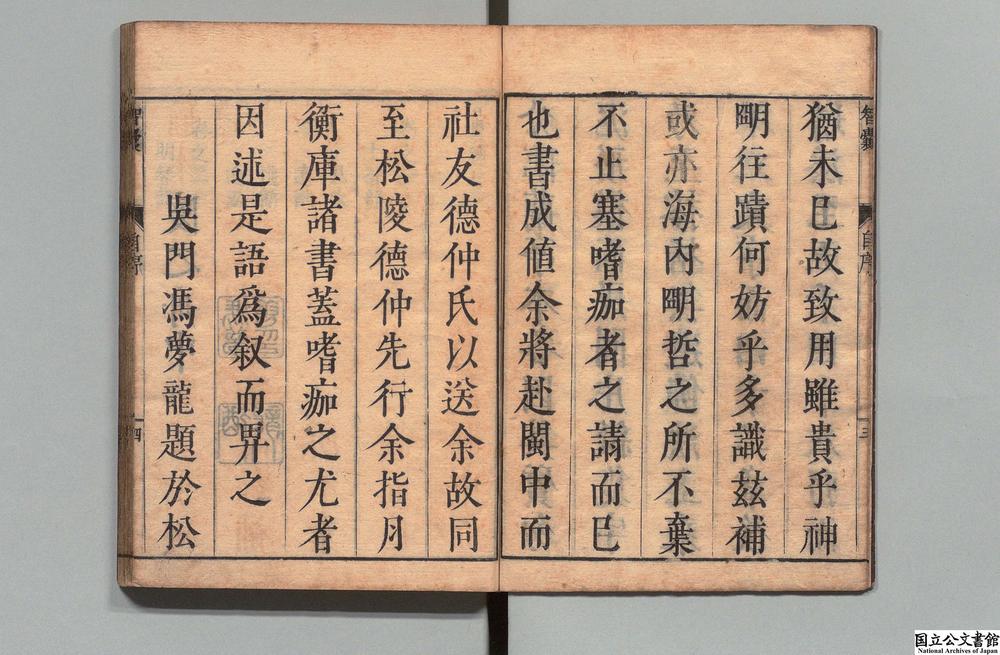 智囊
自序
三
猶未已故致用雖貴乎神
明往蹟何妨乎多識茲補
或亦海內明哲之所不棄
不止塞嗜痂者之請而已
也書成値余將赴閩中而
社友德仲氏以送余故同
至松陵德仲先行余指月
衡庫諸書蓋嗜痂之尤者
因述是語爲叙而畀之
吳門馮夢龍題於松
智囊
自序
四
国立公文書館
National Archives of Japan